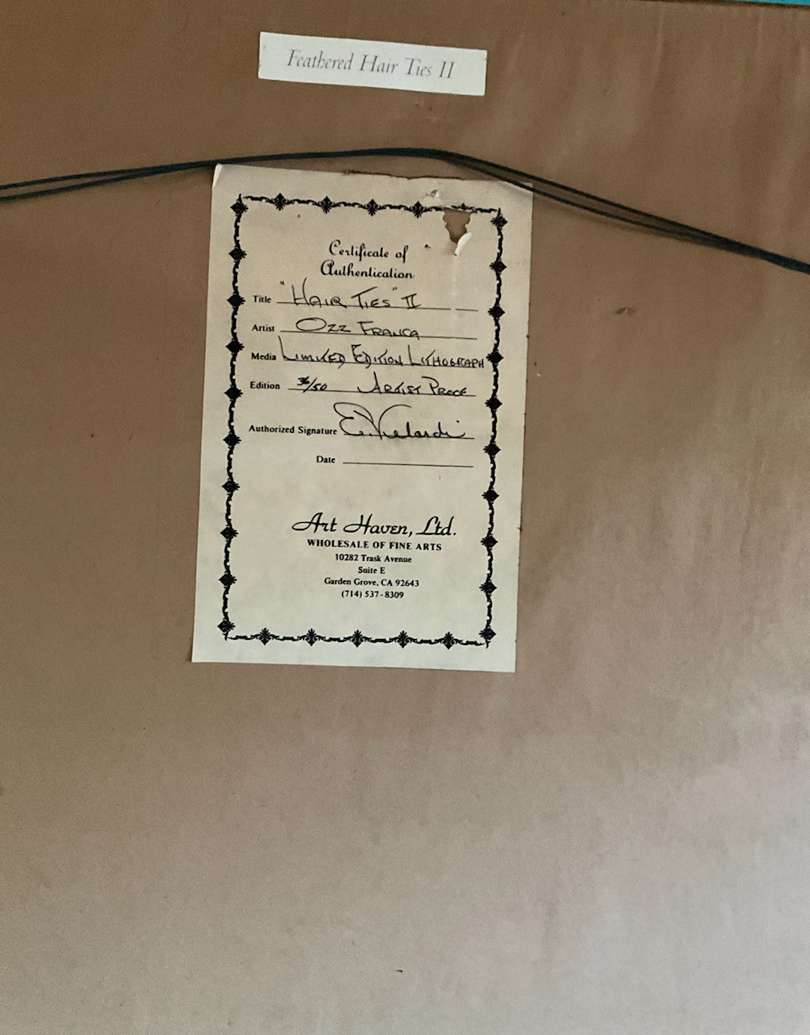 Feathered Hair Ties II
Certificate of
Authentication
Title "Hair Ties" II
Artist Ozz Franca
Media Limited Edition Lithograph
Edition 36/50 Artist Proof
Authorized Signature
Date
Art Haven, Ltd.
WHOLESALE OF FINE ARTS
10282 Trask Avenue
Suite E
Garden Grove, CA 92643
(714) 537-8309